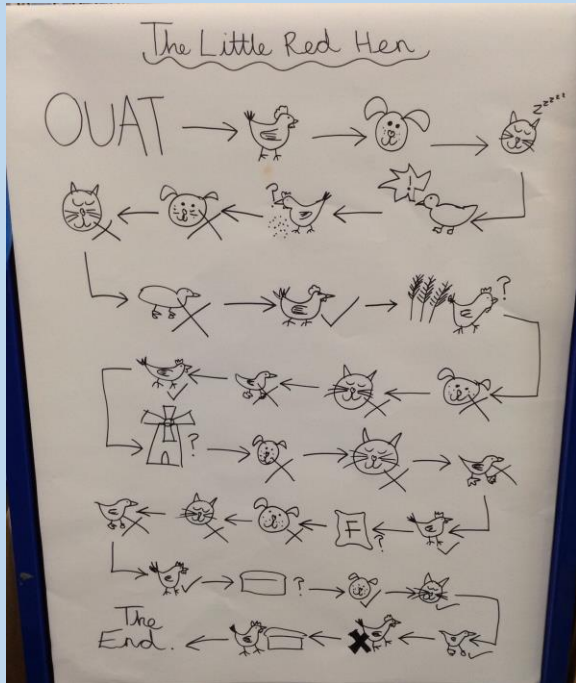 The Little Red Hen
OUAT
zzzzz
!
?
?
?
F
?
?
The
End.